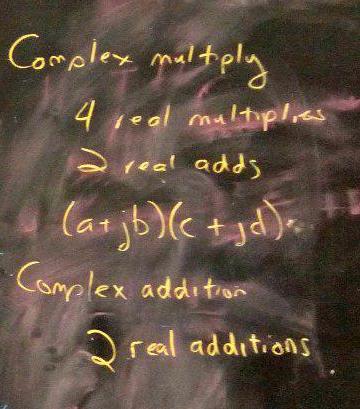 Complex multiply
4 real multiplies
2 real adds
(a+jb)(c+jd).
Complex addition
2 real additions.